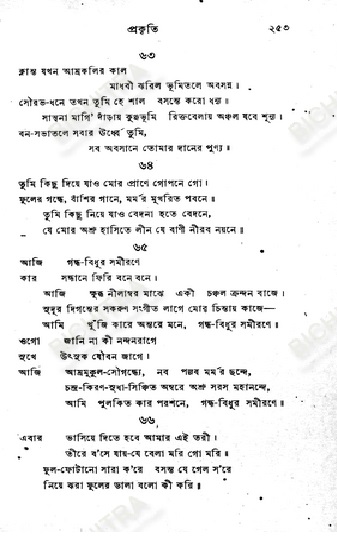 প্রকৃতি ২৫৩
৬৩
ক্লান্ত যখন আম্রকলির কাল
মাধবী ঝরিল ভূমিতলে অবসন্ন।
সৌরভ-ধনে তখন তুমি হে শাল বসন্তে করো ধন্য।
সান্ত্বনা মাগি' দাঁড়ায় কুঞ্জভূমি রিক্তবেলায় অঞ্চল যবে শূন্য।
বন-সভাতলে সবার ঊর্ধ্বে তুমি,
সব অবসানে তোমার দানের পুণ্য।
৬৪
তুমি কিছু দিয়ে যাও মোর প্রাণে গোপনে গো।
ফুলের গন্ধে, বাঁশির গানে, মর্মর মুখরিত পবনে।
তুমি কিছু নিয়ে যাও বেদনা হতে বেদনে,
যে মোর অশ্রু হাসিতে লীন যে বাণী নীরব নয়নে।
৬৫
আজি গন্ধ-বিধুর সমীরণে
কার সন্ধানে ফিরি বনে বনে।
আজি ক্ষুব্ধ নীলাম্বর মাঝে একী চঞ্চল ক্রন্দন বাজে।
সুদূর দিগন্তের সকরুণ সংগীত লাগে মোর চিন্তায় কাজে—
আমি খুঁজি কারে অন্তরে মনে, গন্ধ-বিধুর সমীরণে।
ওগো জানি না কী নন্দনরাগে
সুখে উৎসুক যৌবন জাগে।
আজি আম্রমুকুল-সৌগন্ধ্যে, নব পল্লব মর্মর ছন্দে,
চন্দ্র-কিরণ-সুধা-সিঞ্চিত অম্বরে অশ্রু সরস মহানন্দে,
আমি পুলকিত কার পরশনে, গন্ধ-বিধুর সমীরণে।
৬৬
এবার ভাসিয়ে দিতে হবে আমার এই তরী।
তীরে ব'সে যায়-যে বেলা মরি গো মরি।
ফুল-ফোটানো সারা ক'রে বসন্ত যে গেল স'রে
নিয়ে ঝরা ফুলের ডালা বলো কী করি।